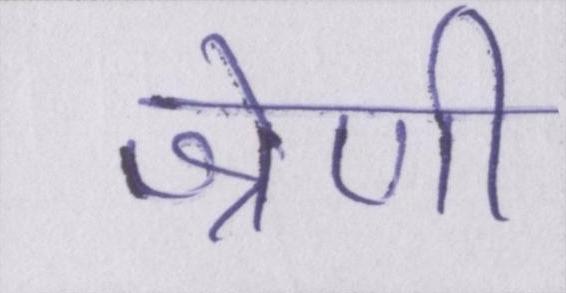 श्रेणी